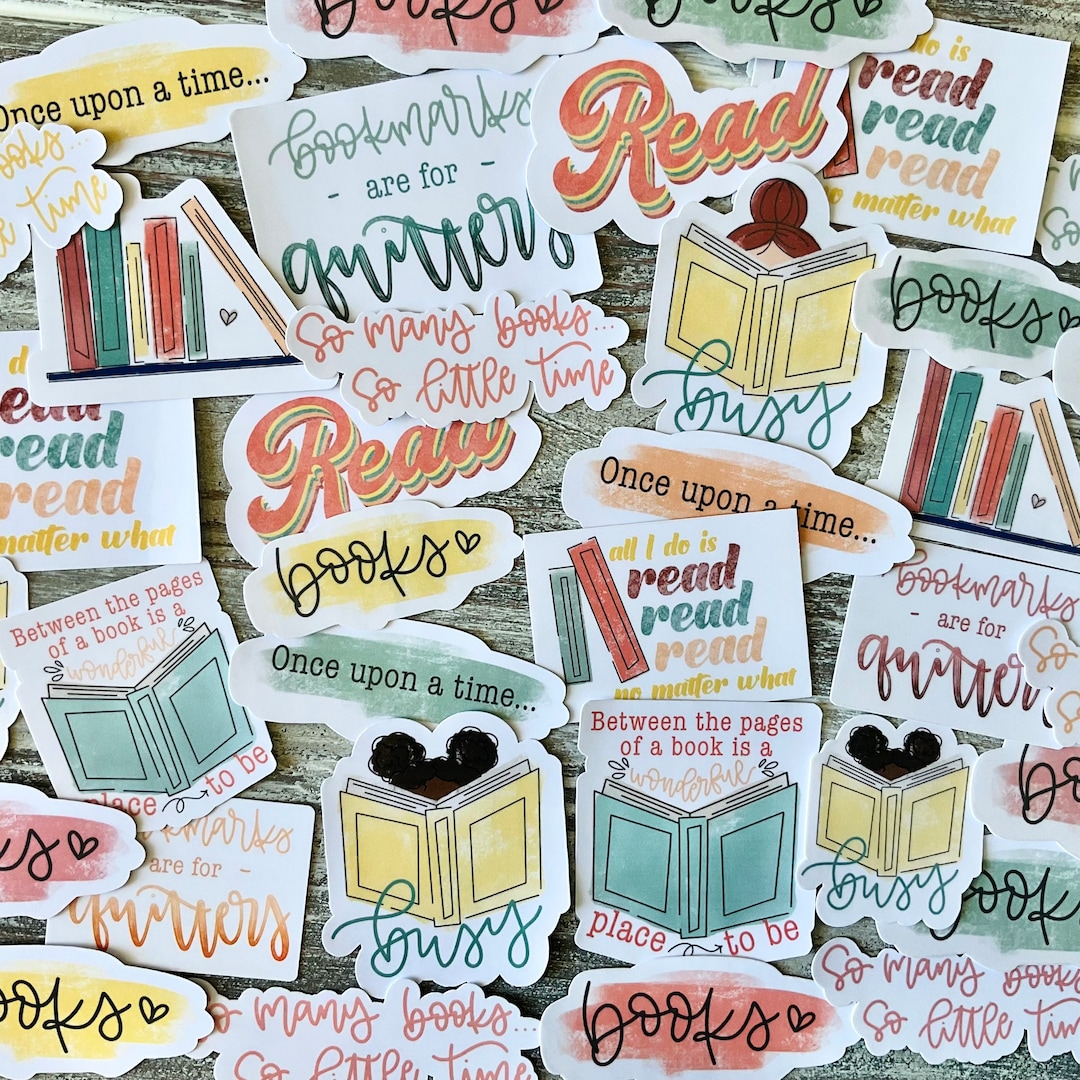 books
books
Once upon a time...
bookmarks
- are for -
quitters
Read
do is
read
read
read
no matter what
books...
time
So many books...
So little time
busy
books
d
read
read
read
matter what
Read
Once upon a time...
books
all I do is
read
read
read
no matter what
bookmarks
- are for
quitters
Between the pages
of a book is a
wonderful
place
to be
Once upon a time...
Between the pages
of a book is a
wonderful
place
to be
busy
busy
books
bookmarks
are for -
quitters
books
So many books
So little time
books
so many books...
So little time
books